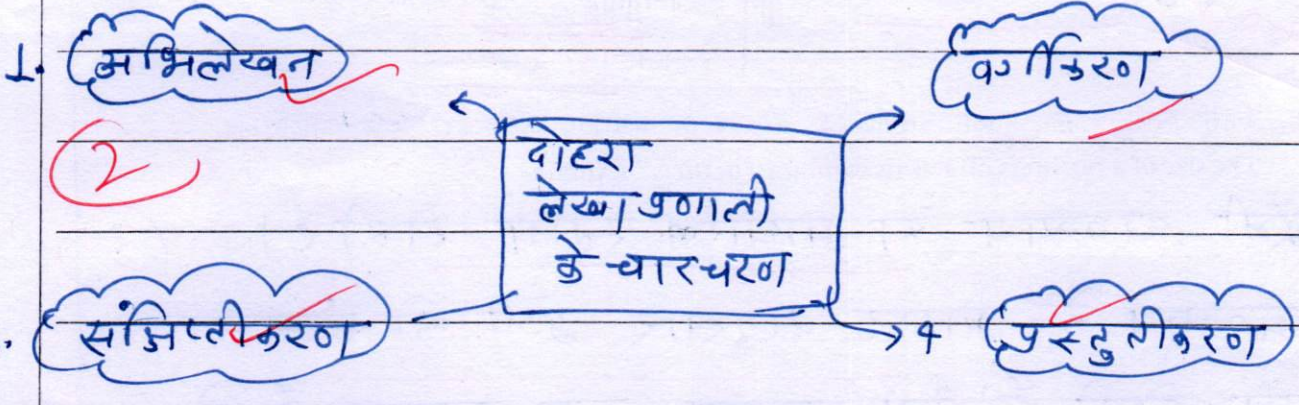 1. अभिलेखन
वर्गीकरण
2
दोहरा
लेखा प्रणाली
के चार चरण
संक्षिप्तीकरण
4 प्रस्तुतीकरण